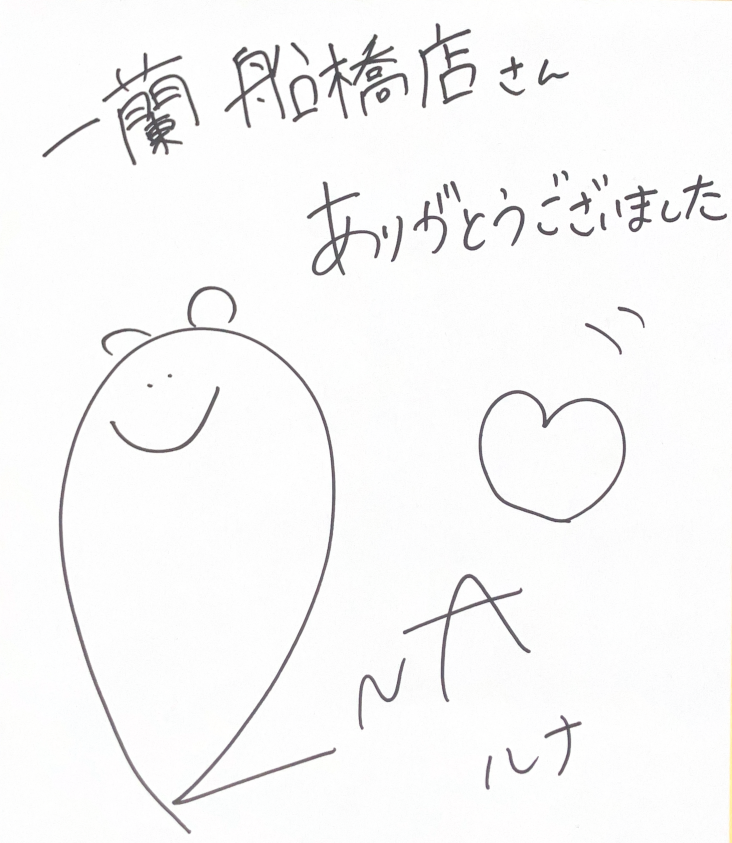 一蘭 船橋店さん
ありがとうございました
LUNA
ルナ